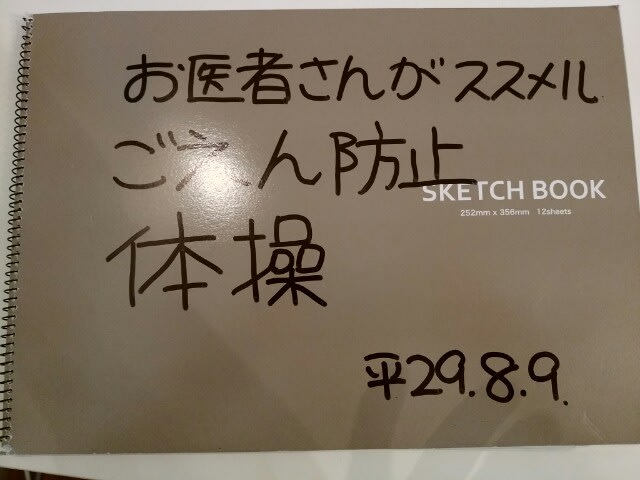 お医者さんがススメル
ごえん防止
SKETCH BOOK
252mm x 356mm 12sheets
体操
平29.8.9.